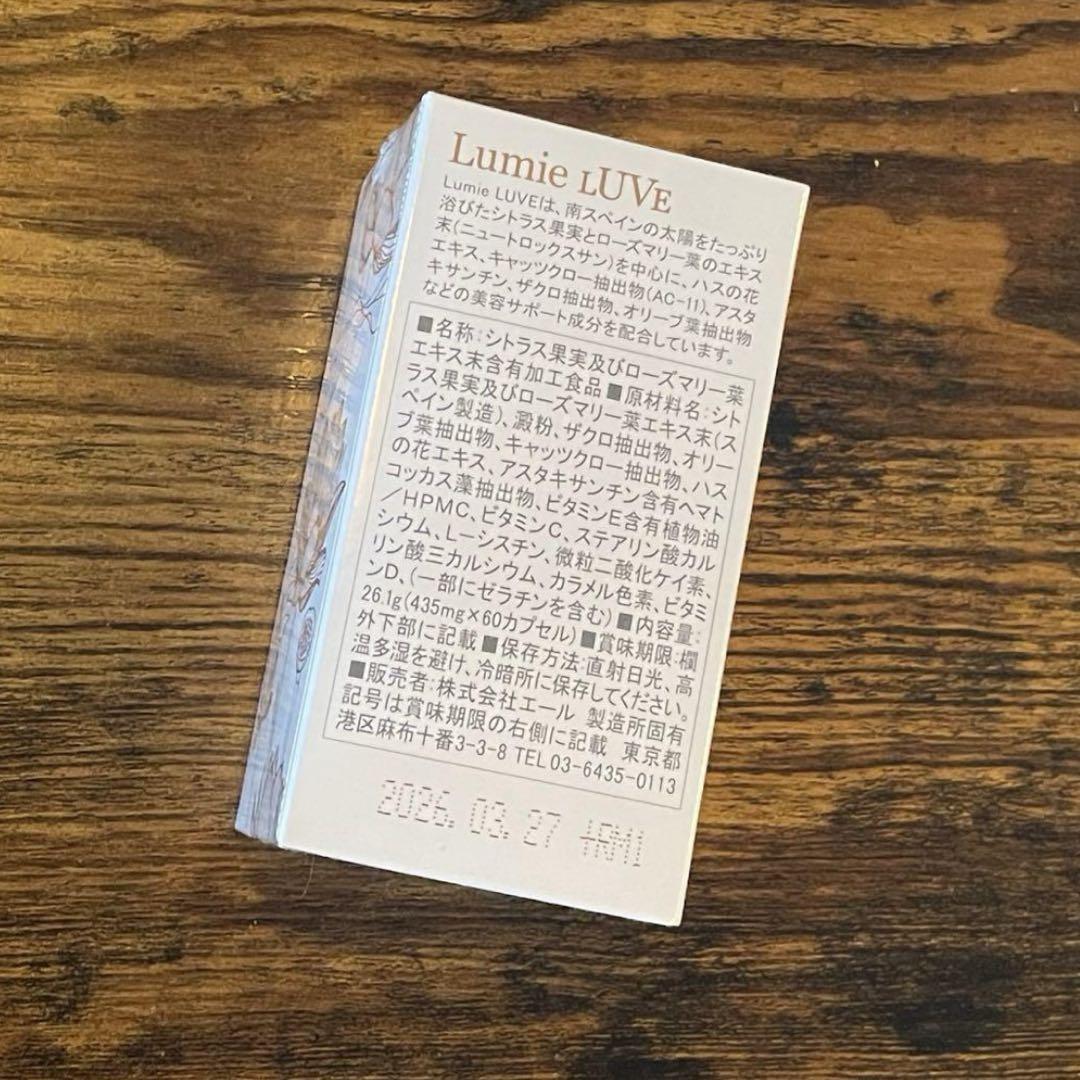 Lumie LUVE
Lumie LUVEは、南スペインの太陽をたっぷり
浴びたシトラス果実とローズマリー葉のエキス
末(ニュートロックスサン)を中心に、ハスの花
エキス、キャッツクロー抽出物(AC-11)、アスタ
キサンチン、ザクロ抽出物、オリーブ葉抽出物
などの美容サポート成分を配合しています。
■名称:シトラス果実及びローズマリー葉
エキス末含有加工食品■原材料名:シト
ラス果実及びローズマリー葉エキス末(ス
ペイン製造)、澱粉、ザクロ抽出物、オリー
ブ葉抽出物、キャッツクロー抽出物、ハス
の花エキス、アスタキサンチン含有ヘマト
コッカス藻抽出物、ビタミンE含有植物油
/HPMC、ビタミンC、ステアリン酸カル
シウム、L-シスチン、微粒二酸化ケイ素、
リン酸三カルシウム、カラメル色素、ビタミ
ンD、(一部にゼラチンを含む)■内容量:
26.1g(435mg×60カプセル)■賞味期限:欄
外下部に記載■保存方法:直射日光、高
温多湿を避け、冷暗所に保存してください。
■販売者:株式会社エール 製造所固有
記号は賞味期限の右側に記載 東京都
港区麻布十番3-3-8 TEL03-6435-0113
2026.03.27 +RM1